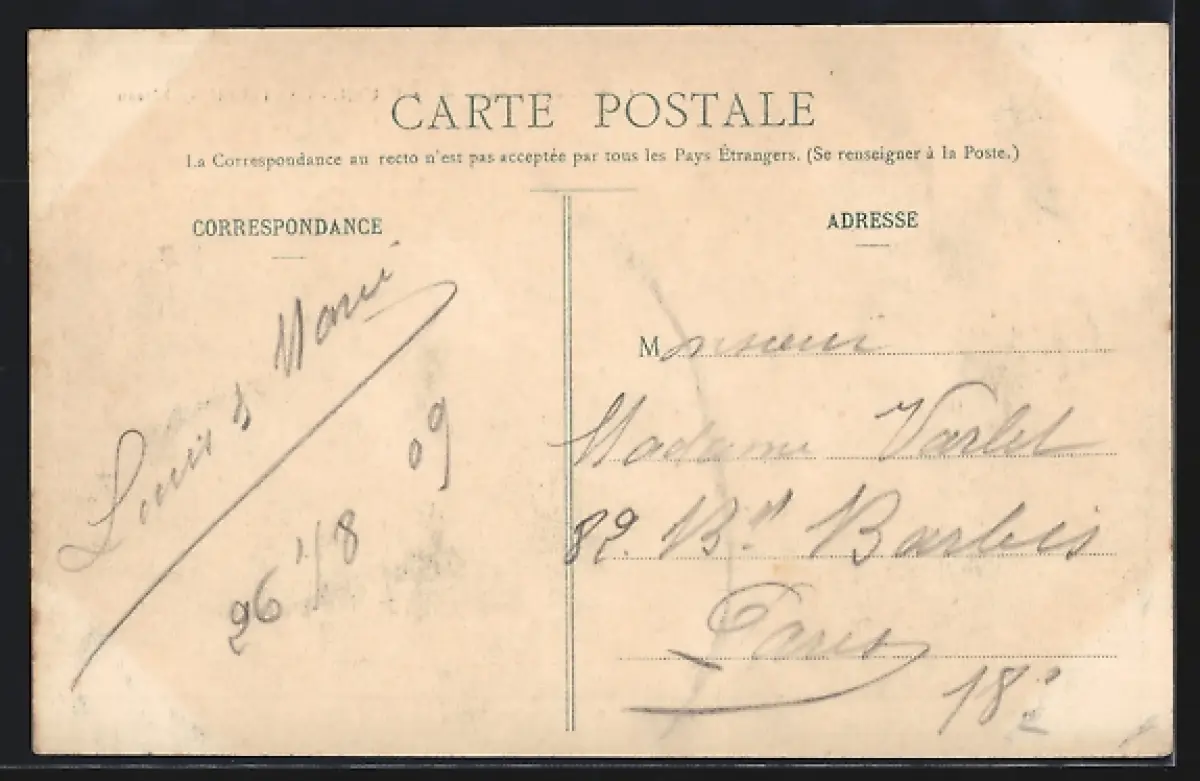 CARTE POSTALE
La Correspondance au recto n'est pas acceptée par tous les Pays Étrangers. (Se renseigner à la Poste.)
CORRESPONDANCE
Louis & Marie
26/8 09
ADRESSE
Monsieur
Madame Varlet
82. Bd Barbès
Paris
18e